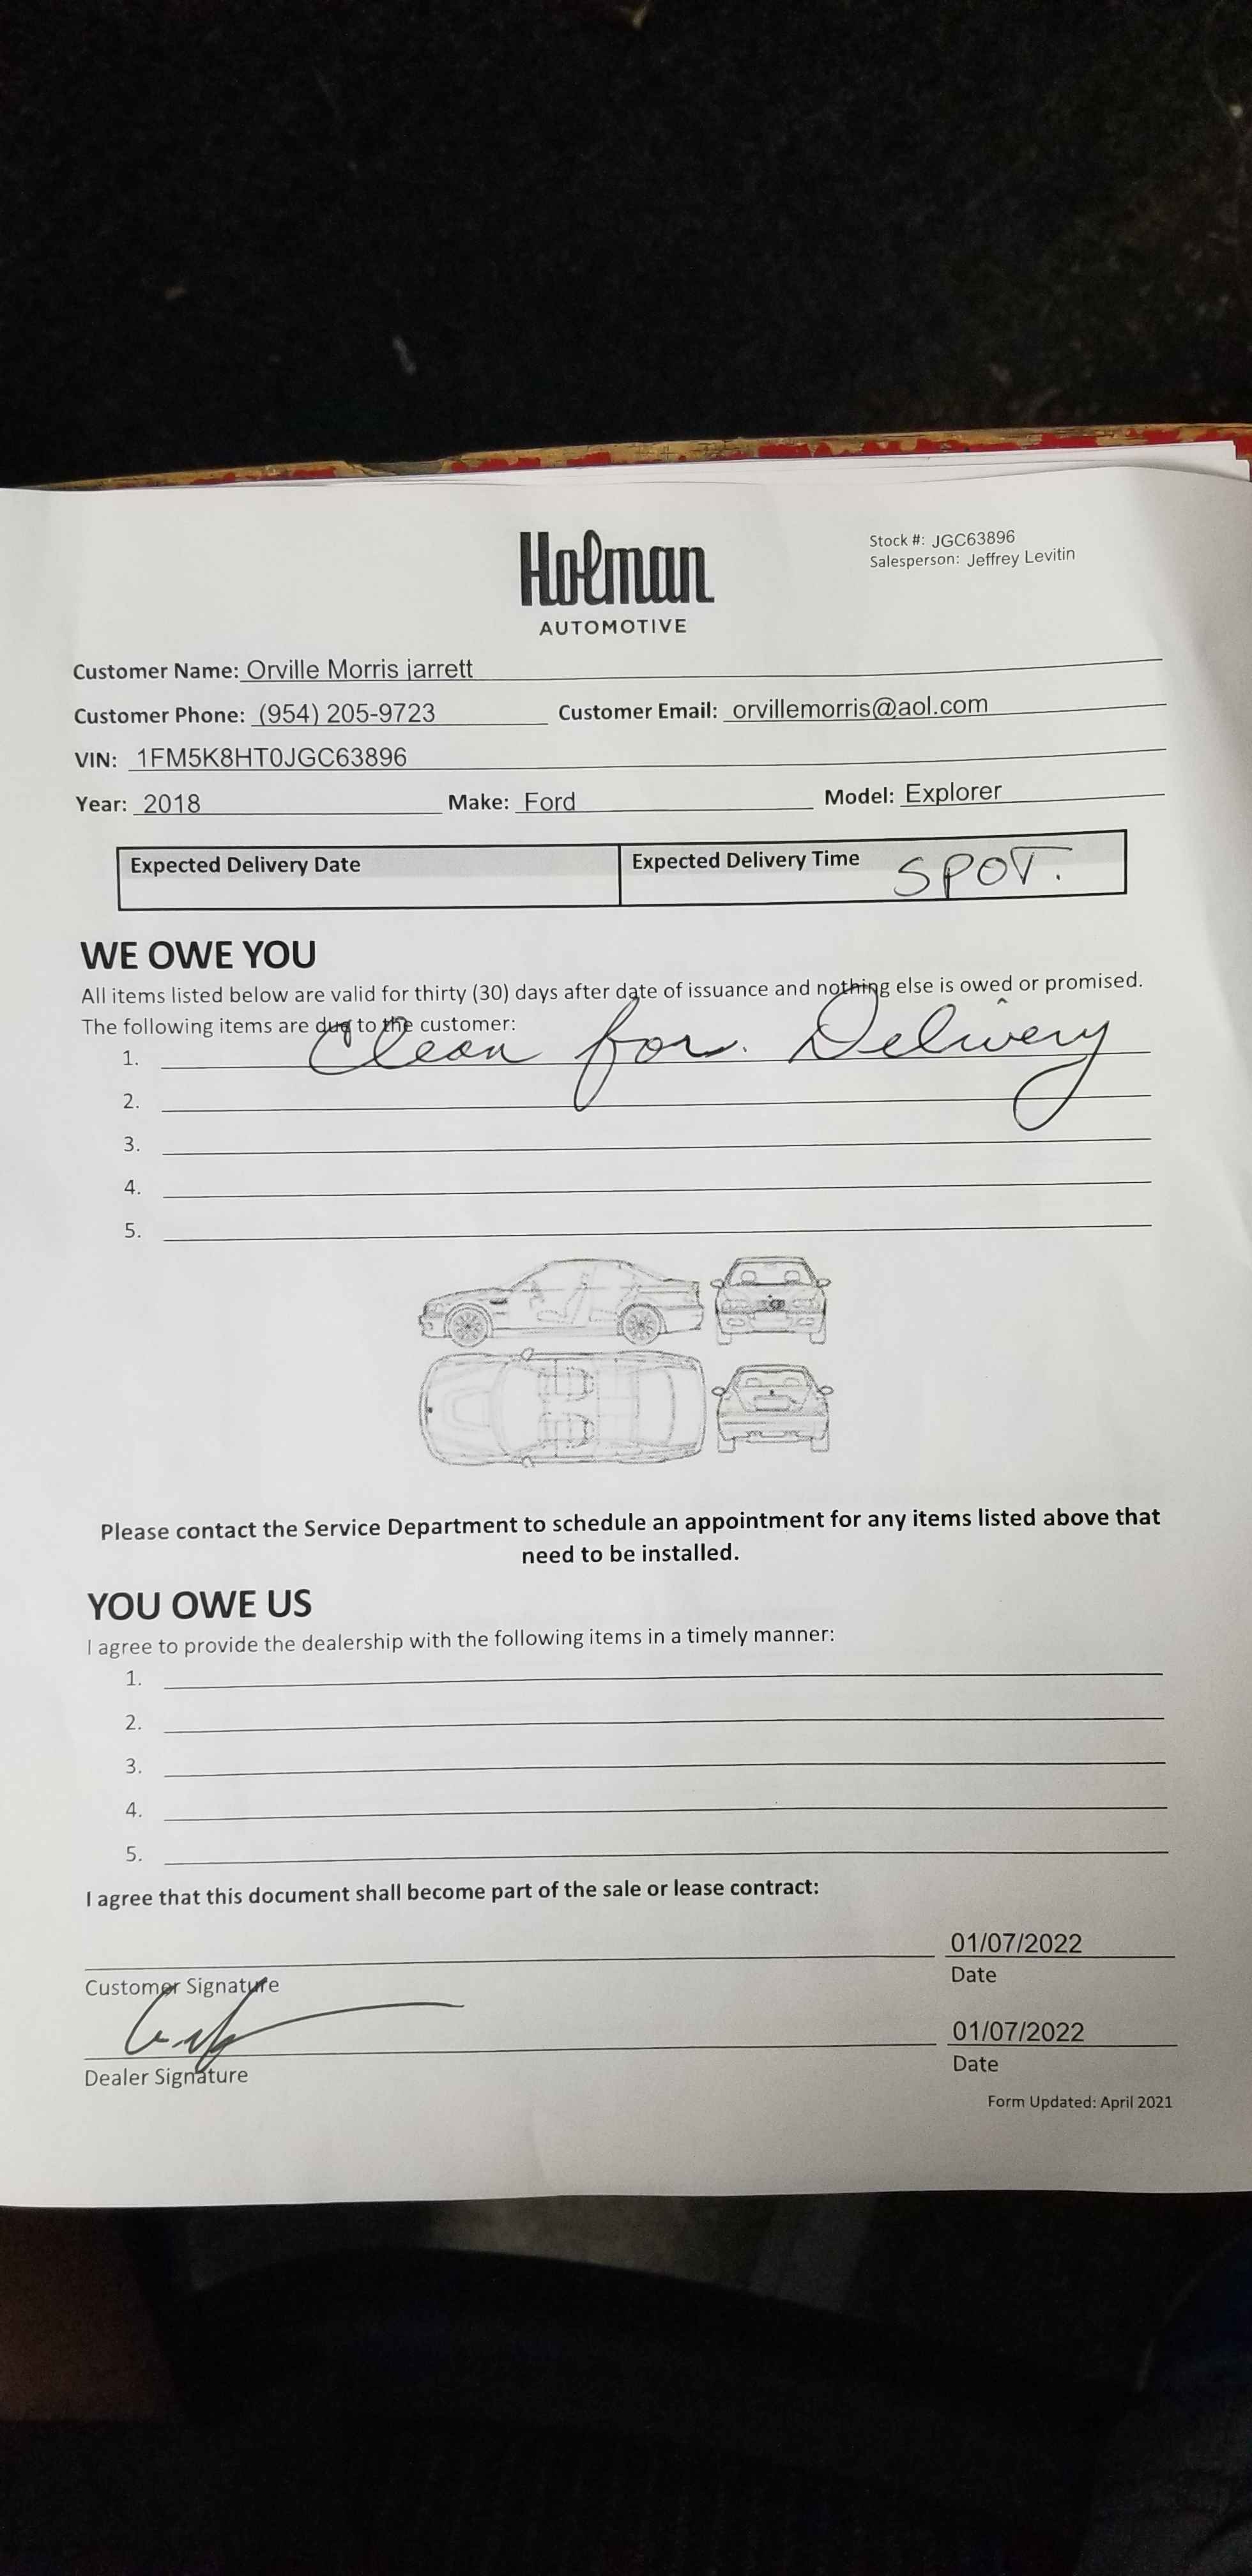 Holman
AUTOMOTIVE
Stock #: JGC63896
Salesperson: Jeffrey Levitin
Customer Name: Orville Morris jarrett
Customer Phone: (954) 205-9723 Customer Email: orvillemorris@aol.com
VIN: 1FM5K8HT0JGC63896
Year: 2018 Make: Ford Model: Explorer
Expected Delivery Date Expected Delivery Time SPOT.
WE OWE YOU
All items listed below are valid for thirty (30) days after date of issuance and nothing else is owed or promised.
The following items are due to the customer:
1. Clean for. Delivery
2.
3.
4.
5.
Please contact the Service Department to schedule an appointment for any items listed above that
need to be installed.
YOU OWE US
I agree to provide the dealership with the following items in a timely manner:
1.
2.
3.
4.
5.
I agree that this document shall become part of the sale or lease contract:
01/07/2022
Customer Signature Date
01/07/2022
Dealer Signature Date
Form Updated: April 2021